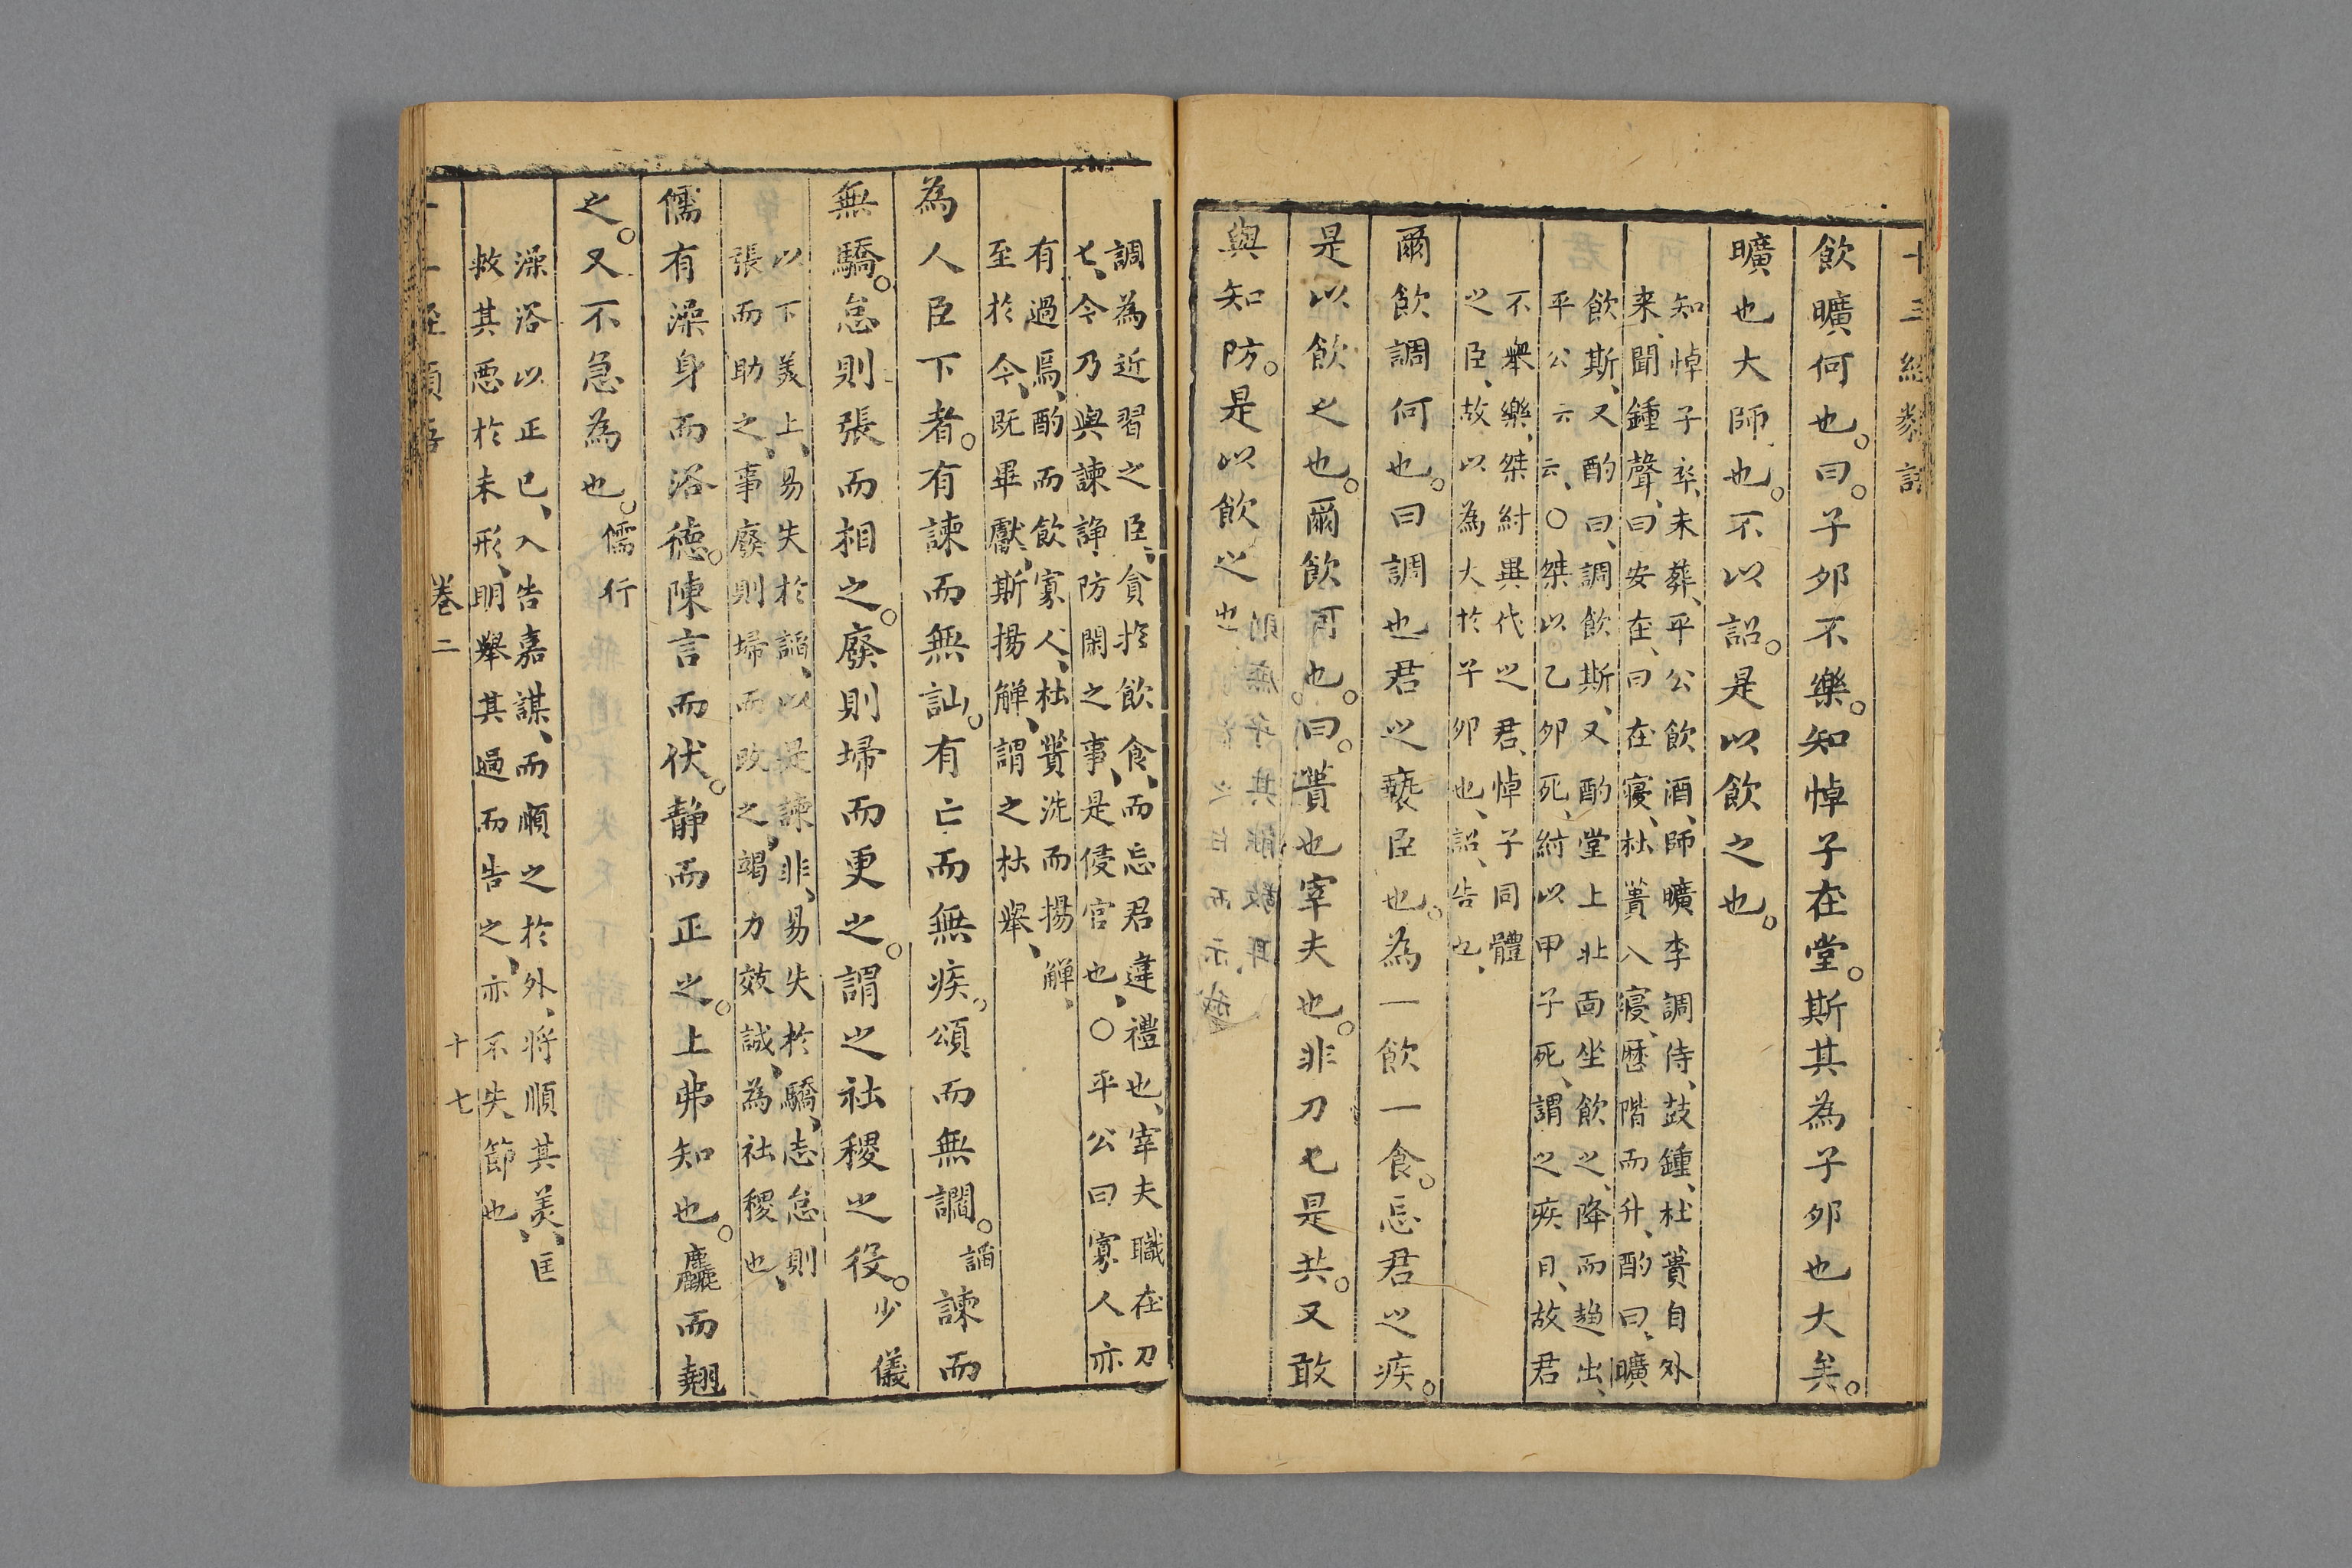 十三經類語
飲曠何也。曰。子夘不樂。知悼子在堂。斯其為子夘也大矣。
曠也大師也。不以詔。是以飲之也。
知悼子卒、未葬、平公飲酒、師曠李調侍、鼓鍾、杜蕢自外
来、聞鍾聲、曰安在、曰在寝、杜蕢入寝、歷階而升、酌曰、曠
飲斯、又酌曰、調飲斯、又酌堂上北面坐飲之、降而趋出、
平公云云、○桀以乙夘死、紂以甲子死、謂之疾日、故君
不舉樂、桀紂異代之君、悼子同體
之臣、故以為大於子夘也、詔、告也、
爾飲調何也。曰調也君之褻臣也。為一飲一食。忘君之疾。
是以飲之也。爾飲何也。曰。蕢也宰夫也。非刀匕是共。又敢
與知防。是以飲之也。
調為近習之臣、貪於飲食、而忘君違禮也、宰夫職在刀
匕、今乃與諫諍防閑之事、是侵官也、○平公曰寡人亦
有過焉、酌而飲寡人、杜蕢洗而揚觶、
至於今、既畢獻、斯揚觶、謂之杜舉、
為人臣下者。有諫而無訕。有亡而無疾。頌而無讇。諫而
無驕。怠則張而相之。廢則埽而更之。謂之社稷之役。少儀
以下美上、易失於讇、以是諫非、易失於驕、志怠則
張而助之、事廢則埽而改之、竭力效誠、為社稷也、
儒有澡身而浴徳。陳言而伏。静而正之。上弗知也。麤而翹
之。又不急為也。儒行
澡浴以正己、入告嘉謀、而順之於外、将順其美、匡
救其悪於未形、明舉其過而告之、亦不失節也
卷二 十七